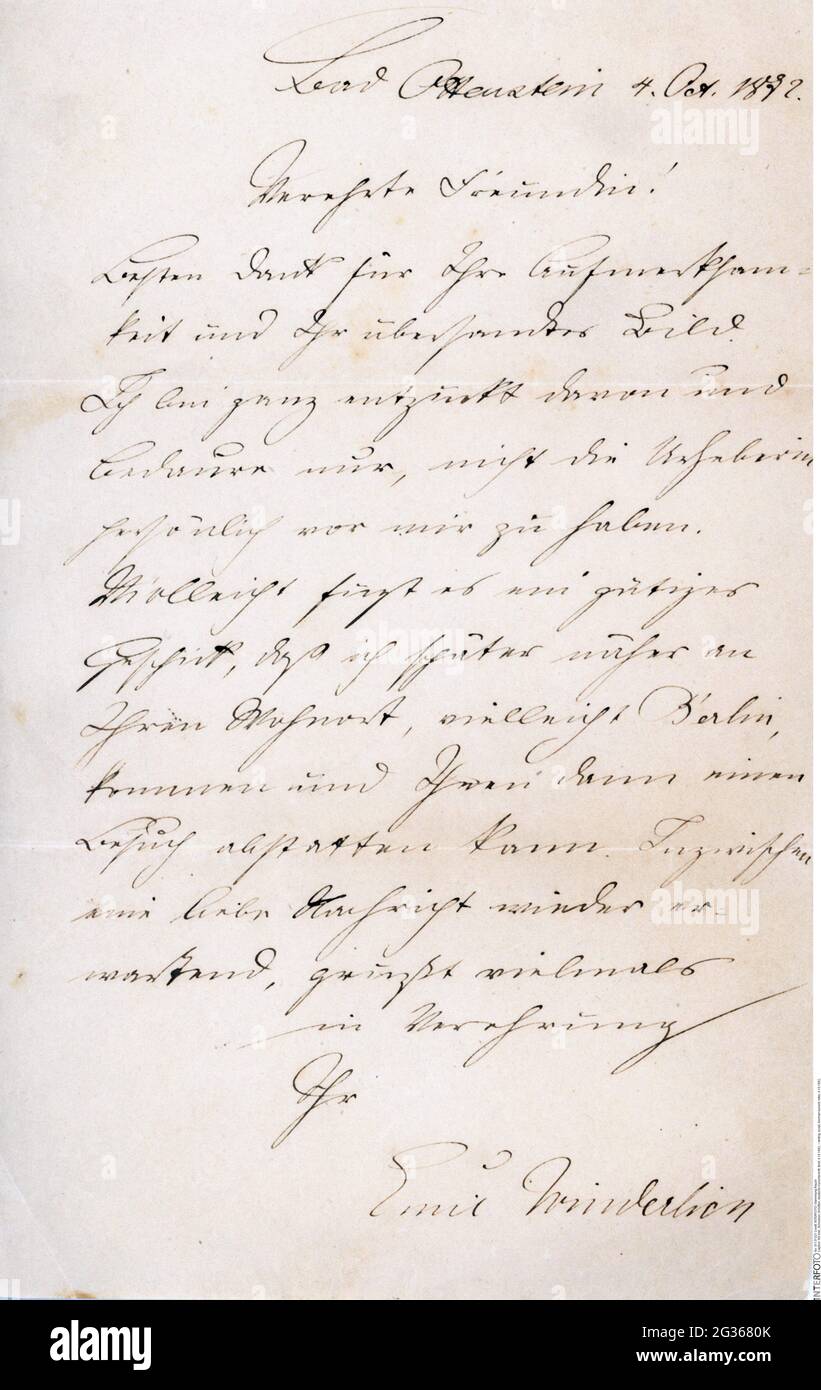 Bad Ottenstein 4. Oct. 1892.
Verehrte Freundin!
Besten Dank für Ihre Aufmerksam=
keit und Ihr übersandtes Bild.
Ich bin ganz entzückt davon und
bedaure nur, nicht die Urheberin
persönlich vor mir zu haben.
Vielleicht fügt es ein gütiges
Geschick, daß ich später näher an
Ihren Wohnort, vielleicht Berlin,
kommen und Ihnen dann einen
Besuch abstatten kann. Inzwischen
eine liebe Nachricht wieder er-
wartend, grüßt vielmals
in Verehrung
Ihr
Emil
alamy
alamy
alamy
INTERFOTO
alamy
Image ID: 2G3680K
www.alamy.com